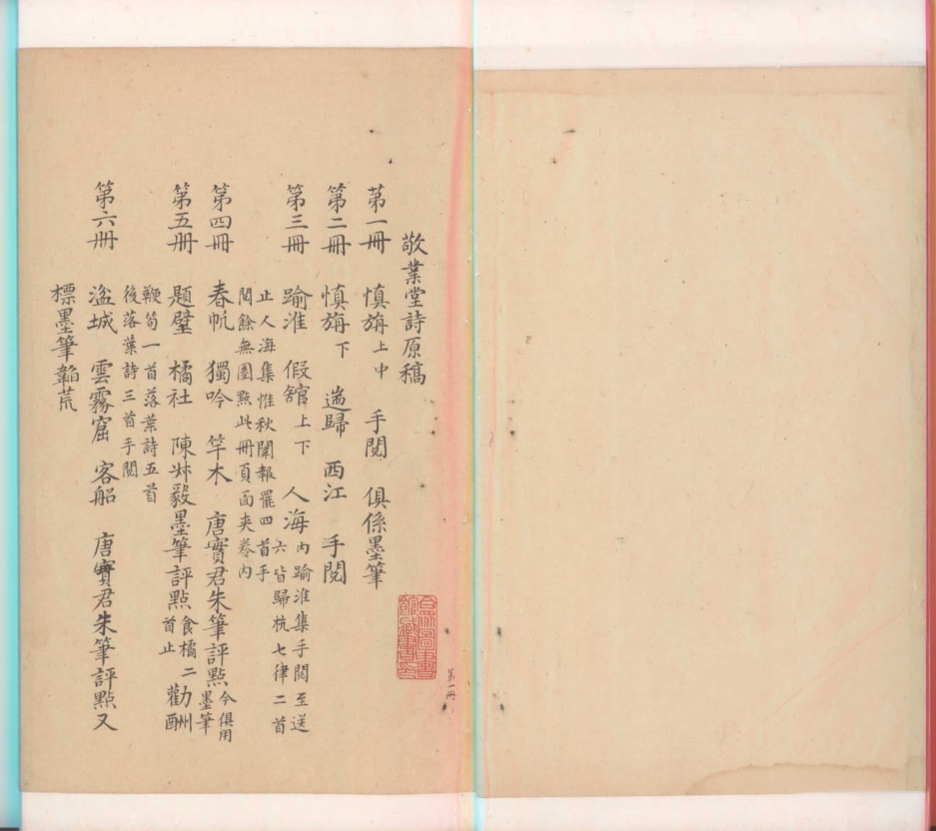 敬業堂詩原稿
第一冊 慎旃上中 手閱 俱係墨筆
第二冊 慎旃下 遄歸 西江 手閱
第三冊 踰淮 假舘上下 人海 內踰淮集手閱至送
六皆歸杭七律二首
止人海集惟秋闈報罷四首手
閱餘無圈點此冊頁面夾卷內
第四冊 春帆 獨吟 竿木 唐實君朱筆評點 今俱用
墨筆
第五冊 題壁 橘社 陳叔毅墨筆評點 食橘二
首止 勸酬
鞭筍一首落葉詩五首
後落葉詩三首手閱
第六冊 湓城 雲霧窟 客船 唐實君朱筆評點又
標墨筆韜荒
合眾圖書
館藏書印
第一冊